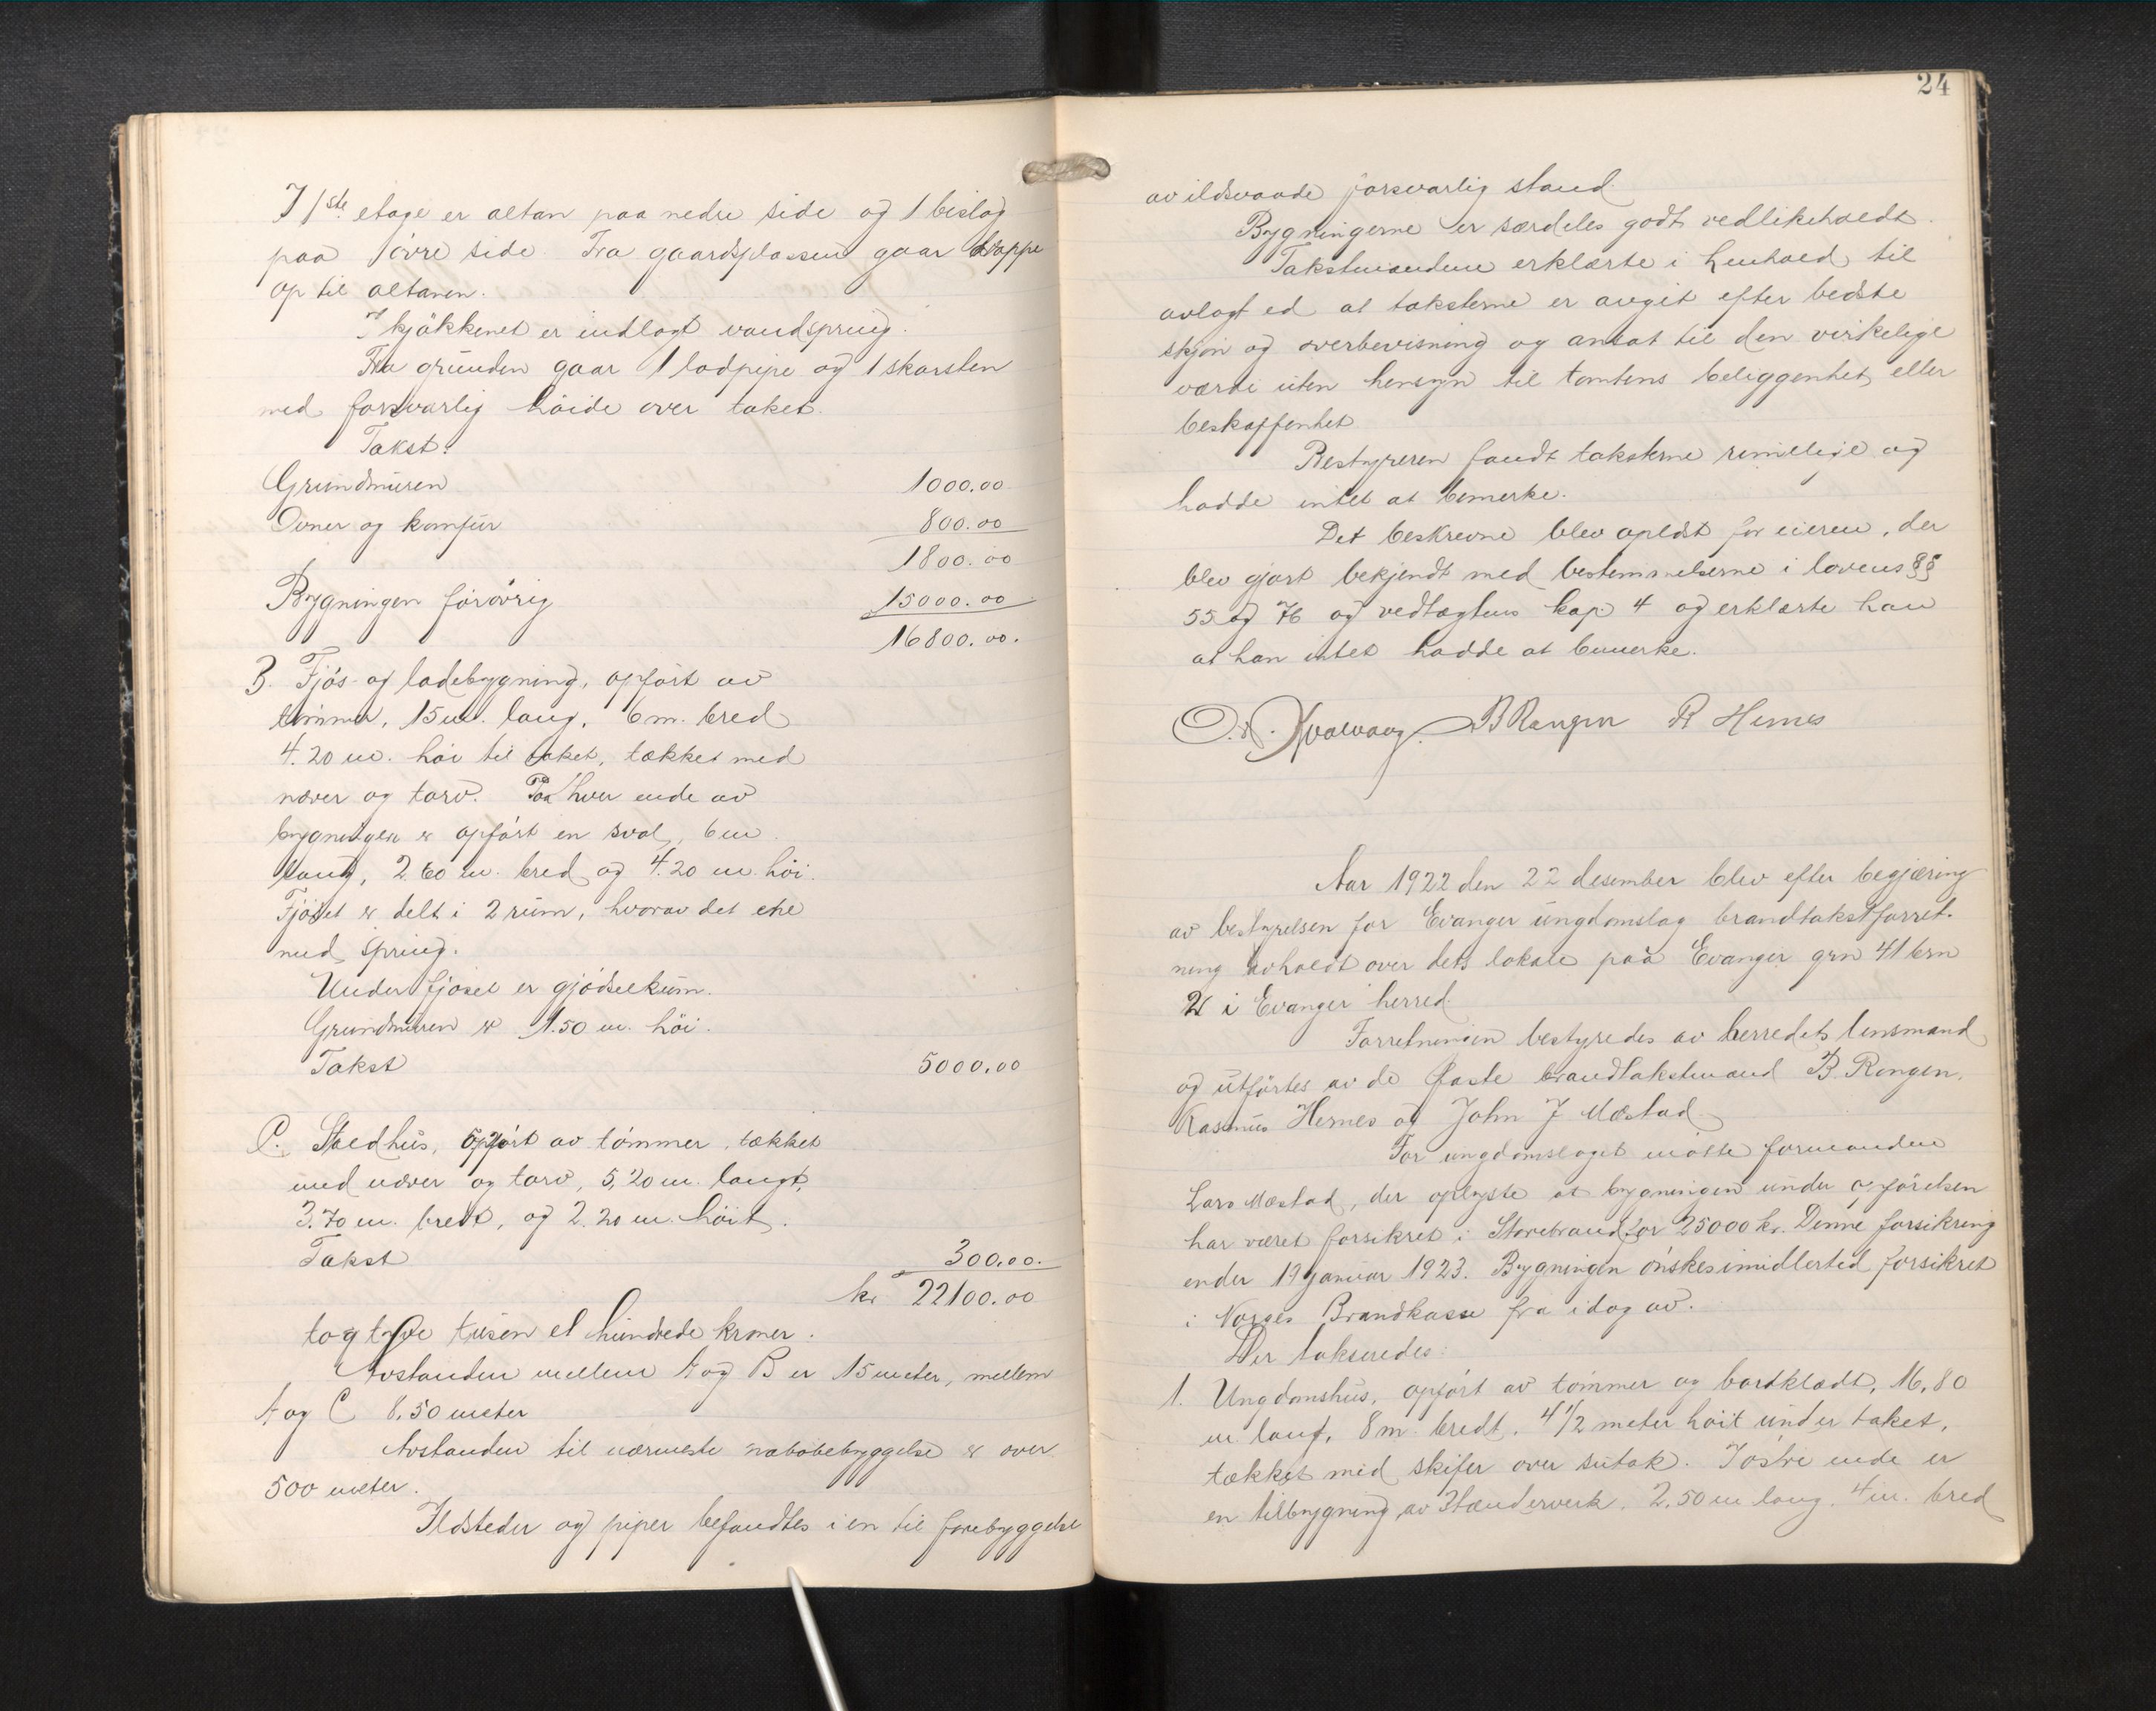 I 1ste etage er altan paa nedre side og 1 bislag
paa övre side. Fra gaardsplassen gaar trappe
op til altanen.
I kjökkenet er indlagt vandspring.
Fra grunden gaar 1 lodpipe og 1 skorsten
med forsvarlig höide over taket.
Takst:
Grundmuren 1000.00
Ovner og komfur 800.00
1800.00
Bygningen forövrig 15000.00
16800.00.
B. Fjös- og ladebygning, opfört av
tömmer, 15 m. lang, 6 m. bred
4.20 m. höi til taket, tækket med
næver og torv. Paa hver ende av
bygningen er opfört en sval, 6 m
lang, 2.60 m. bred og 4.20 m. höi.
Fjöset er delt i 2 rum, hvorav det ene
med spring.
Under fjöset er gjödselkum.
Grundmuren er 1.50 m. höi.
Takst 5000.00
C. Stedhus, opfört av tömmer, tækket
med næver og torv, 5,20 m. langt,
3.70 m. bredt, og 2.20 m. höit.
Takst 300.00.
kr 22100.00
to og tyve tusen et hundrede kroner.
Avstanden mellem A og B er 15 meter, mellem
A og C 8.50 meter
Avstanden til nærmeste nabobebyggelse er over
500 meter.
Ildsteder og piper befandtes i en til forebyggelse
24
av ildsvaade forsvarlig stand.
Bygningerne er særdeles godt vedlikeholdt.
Takstmændene erklærte i henhold til
avlagt ed at taksterne er avgit efter bedste
skjön og overbevisning og ansat til den virkelige
værdi uten hensyn til tomtens beliggenhet eller
beskaffenhet
Bestyreren fandt taksterne rimelige og
hadde intet at bemerke.
Det beskrevne blev oplæst for eieren, der
blev gjort bekjendt med bestemmelserne i lovens §§
55 og 76 og vedtægtens kap 4 og erklærte han
at han intet hadde at bemerke.
O. N. Kvalvaag. B Rongen R Hernes
Aar 1922 den 22 desember blev efter begjæring
av bestyrelsen for Evanger ungdomslag brandtakstforret-
ning avholdt over dets lokale paa Evanger grn 41 brn
21 i Evanger herred.
Forretningen bestyredes av herredets lensmand
og utförtes av de faste brandtakstmænd B. Rongen,
Rasmus Hernes og John J Mæstad.
For ungdomslaget mötte formanden
Lars Mæstad, der oplyste at bygningen under opförelsen
har været forsikret i Storebrand for 25000 kr. Denne forsikring
ender 19 januar 1923. Bygningen önskes imidlertid forsikret
i Norges Brandkasse fra idag av.
Der takseredes:
1. Ungdomshus, opfört av tömmer og bordklædt, 16,80
m langt, 8 m. bredt. 4 1/2 meter höit under taket,
tækket med skifer over sutak. I östre ende er
en tilbygning av stænderverk. 2.50 m lang. 4 m. bred